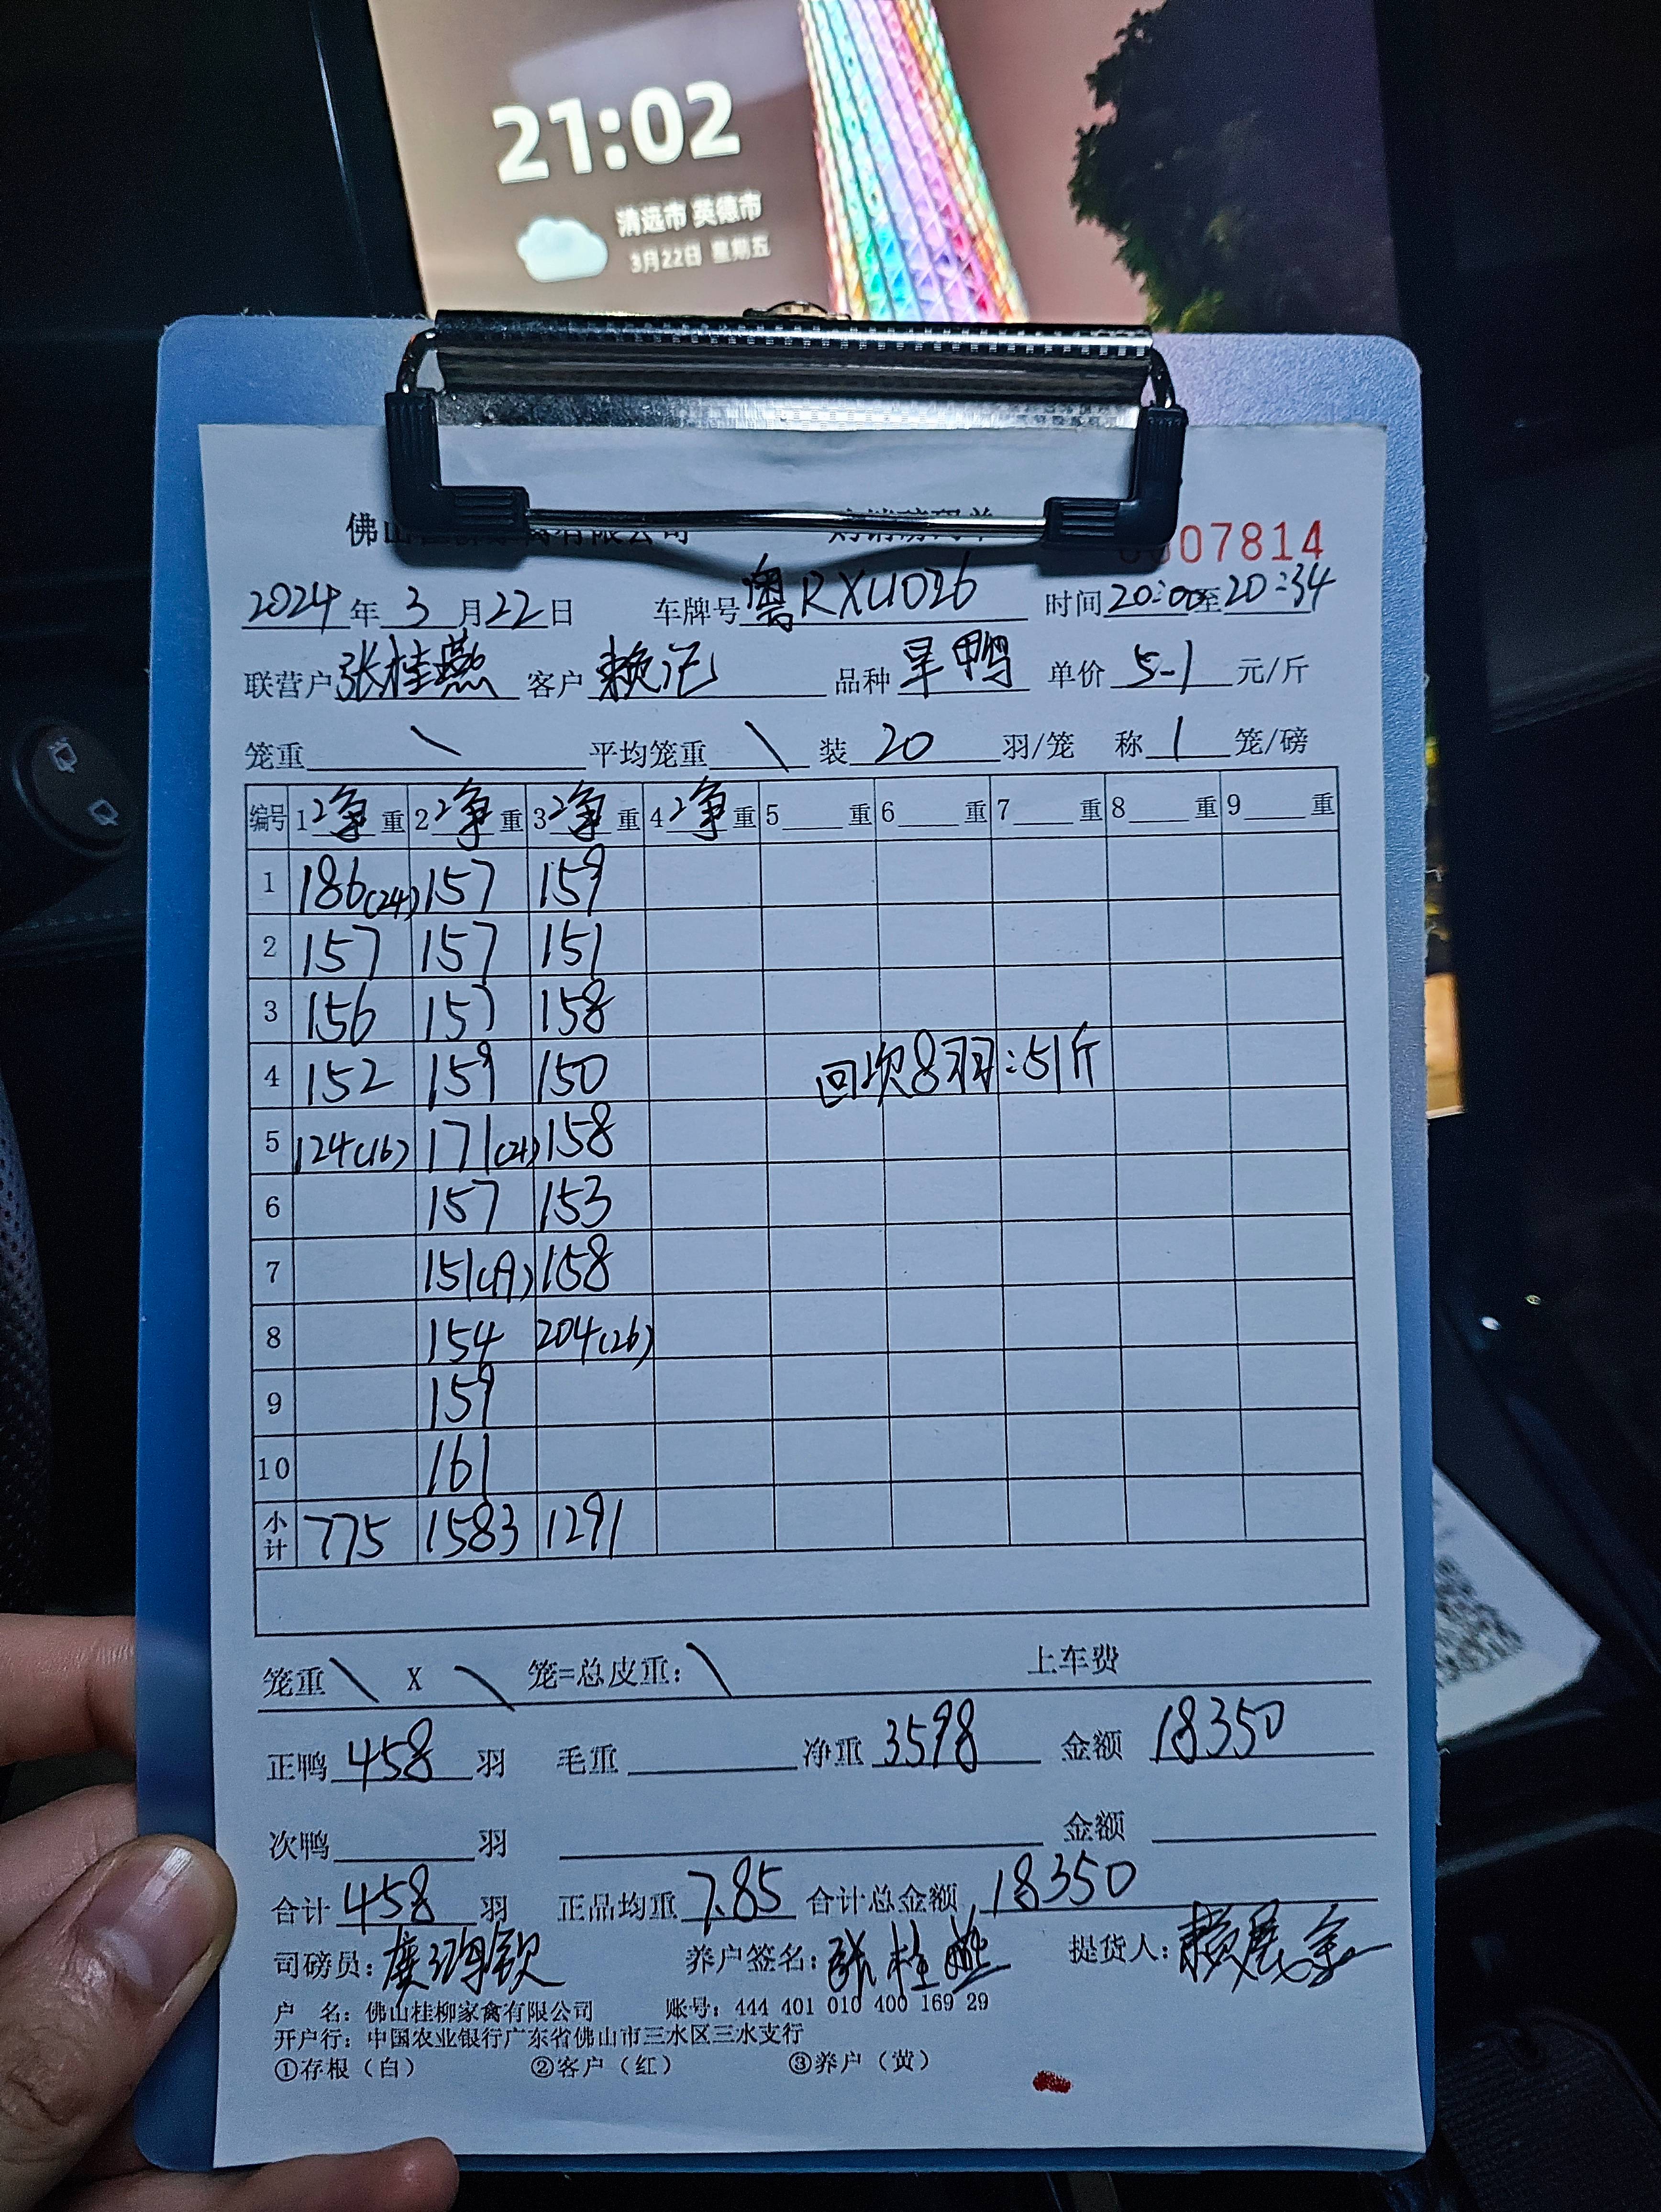 21:02
清远市 英德市
3月22日 星期五
佛山桂柳家禽有限公司 购销磅码单 07814
2024年3月22日 车牌号粤RXU026 时间20:00至20:34
联营户张桂燕 客户赖记 品种旱鸭 单价5-1元/斤
笼重\ 平均笼重\ 装20羽/笼 称1笼/磅
编号 1净重 2净重 3净重 4净重 5重 6重 7重 8重 9重
1 186(24) 157 159
2 157 157 151
3 156 157 158
4 152 159 150 回次8羽:51斤
5 124(16) 171 158
6 157 153
7 151(19) 158
8 154 204(26)
9 159
10 161
小计 775 1583 1291
笼重\ X \ 笼=总皮重:\ 上车费
正鸭458羽 毛重 净重3598 金额18350
次鸭 羽 金额
合计458羽 正品均重7.85 合计总金额18350
司磅员: 养户签名:张桂燕 提货人:
户 名:佛山桂柳家禽有限公司 账号:444 401 010 400 169 29
开户行:中国农业银行广东省佛山市三水区三水支行
①存根(白) ②客户(红) ③养户(黄)